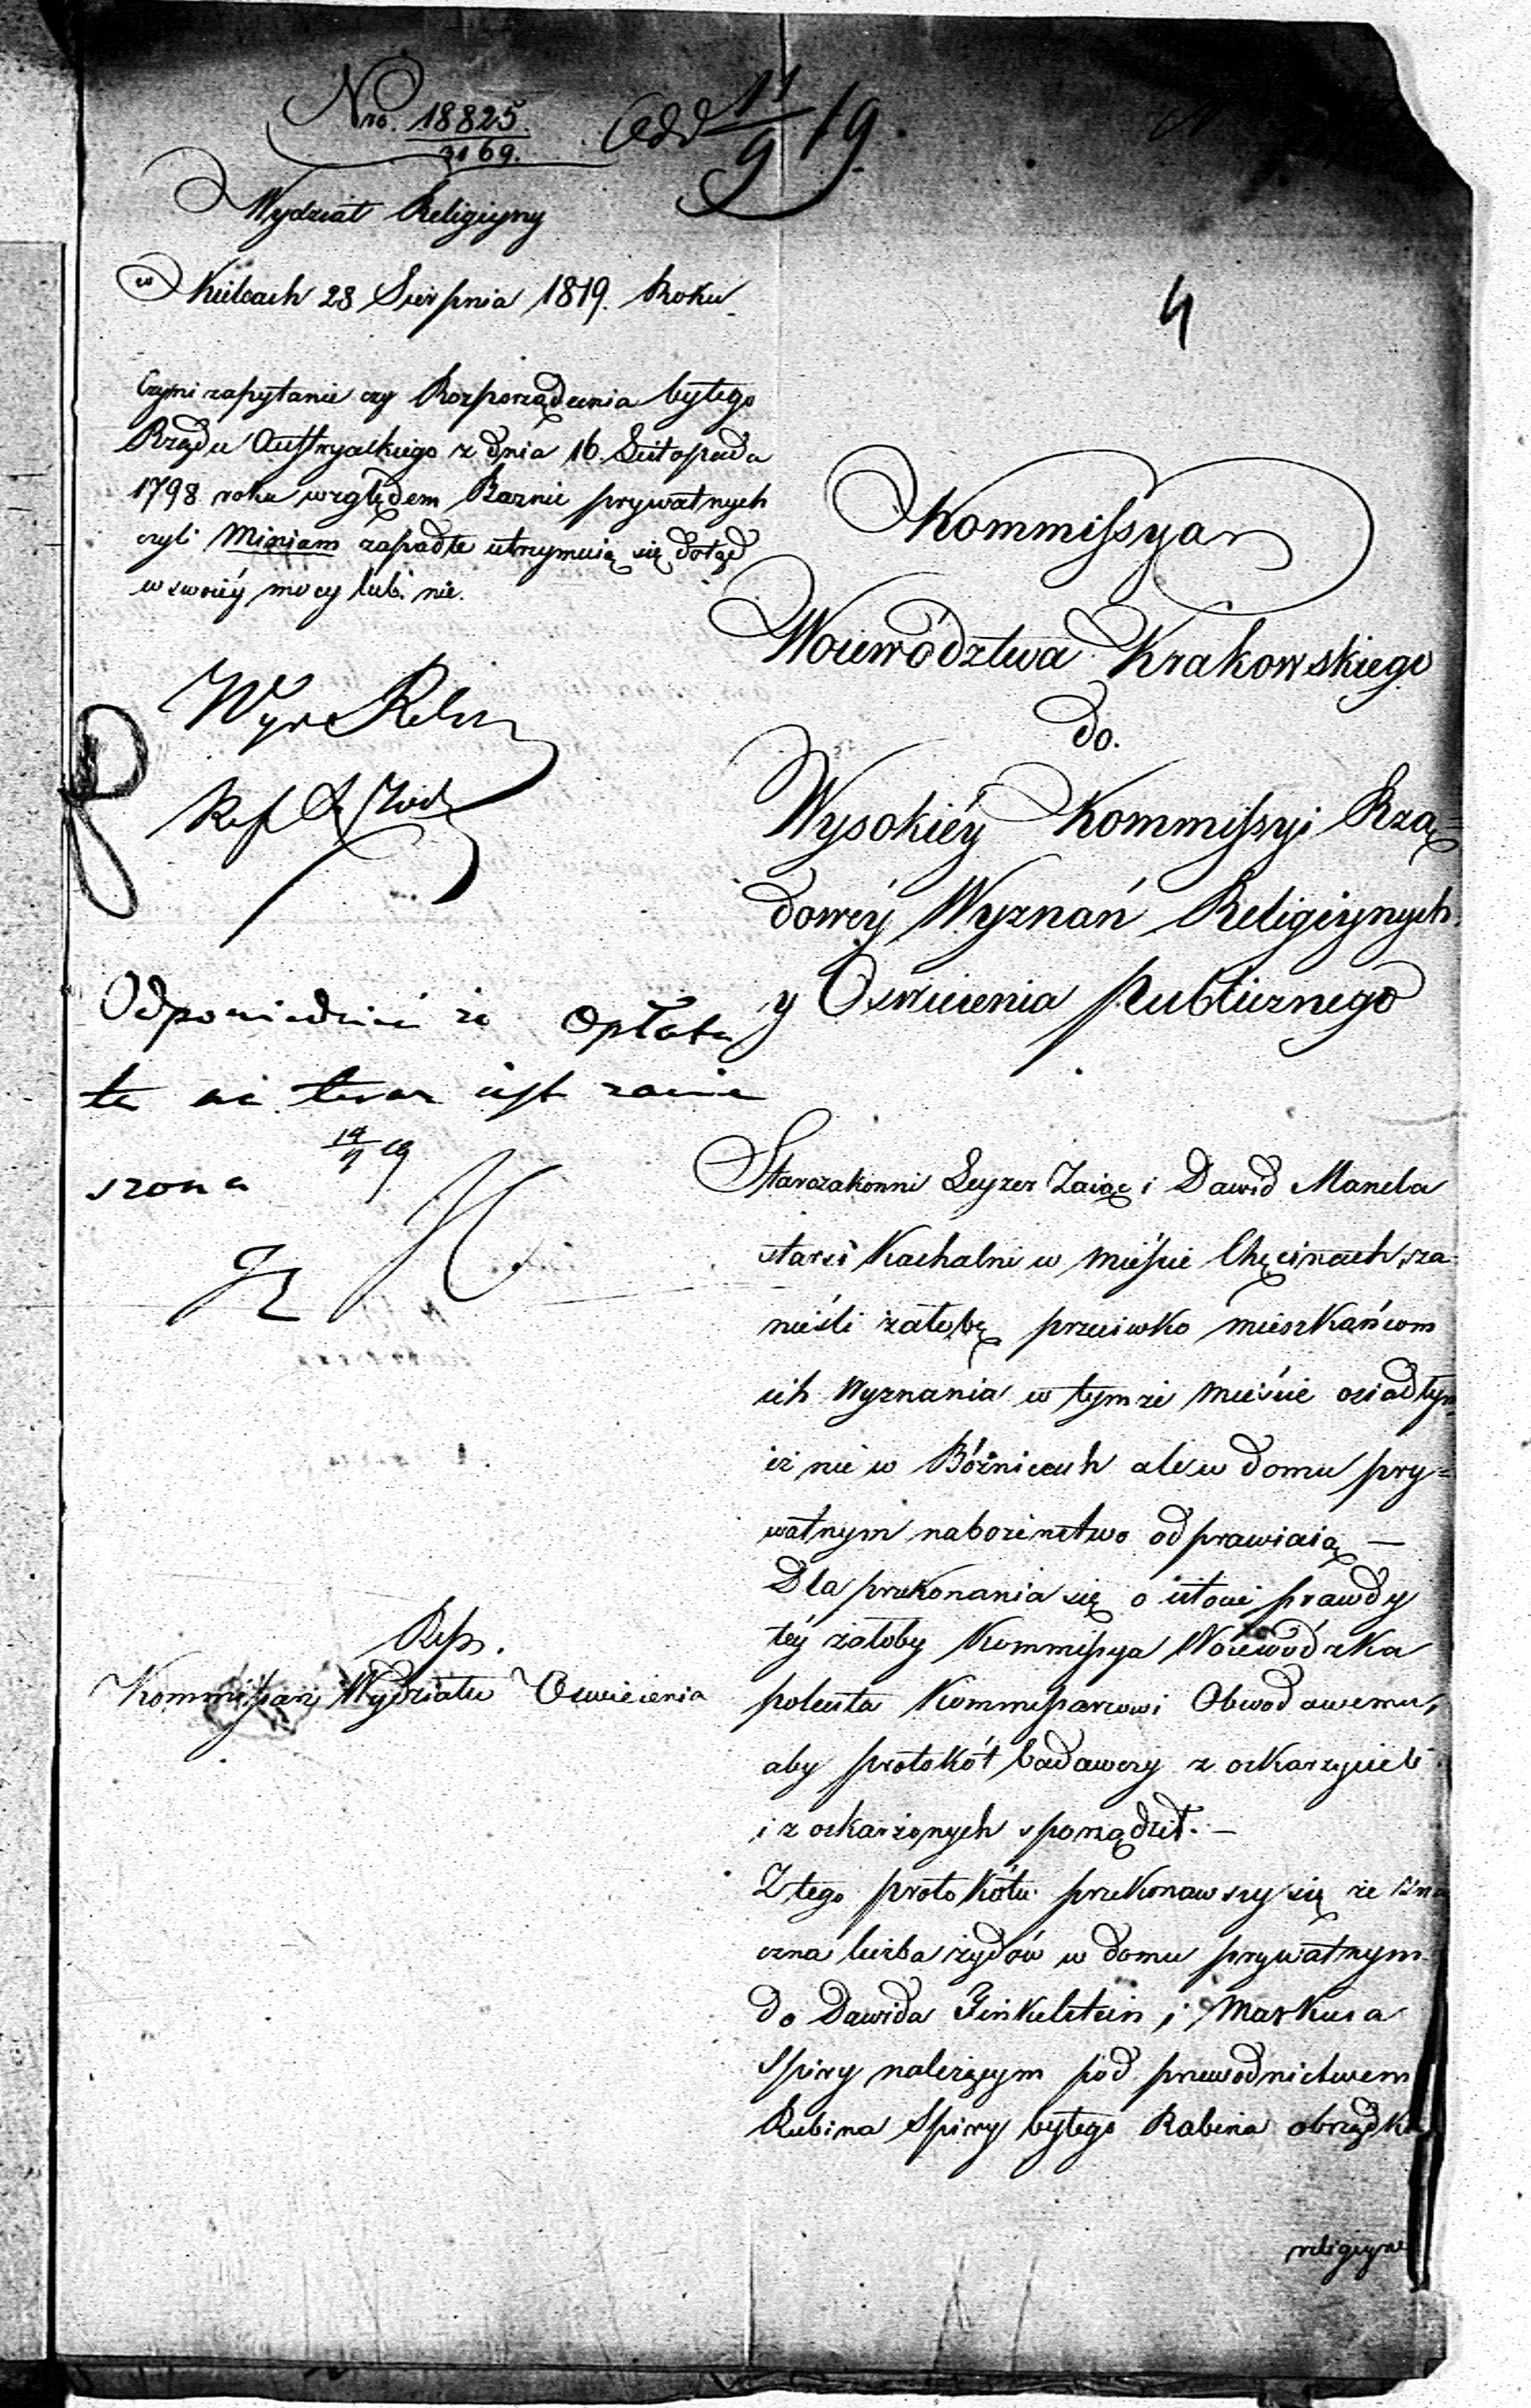 Nro. 18825.
3169.
Odd 11/9 19.
Wydział Religiyny
w Kielcach 28 Sierpnia 1819. Roku
4
Czyni zapytanie czy Rozporządzenia byłego
Rządu Austryackiego z dnia 16. Listopada
1798 roku względem Bożnic prywatnych
czyli Miniam zapadłe utrzymuią się dotąd
w swoiéy mocy lub nie.
Odpowiedzieć że opłata
ta na teraz iest zawie
szona
14/9 19
Resp.
Kommissarz Wydziału Oswiecenia
Kommissya
Woiewództwa Krakowskiego
do.
Wysokiéy Kommissyi Rzą=
dowéy Wyznań Religiynych
y Oswiecenia Publicznego
Starozakonni Leyzer Zaiąc i Dawid Manela
starsi Kachalni w mieście Chęcinach, za-
nieśli żałobę przeciwko mieszkańcom
ich wyznania w tymże mieście osiadłym
iż nie w Bóżnicach ale w domu pry=
watnym nabożeństwo odprawiaią —
Dla przekonania się o istocie prawdy
téy żałoby Kommissya Woiewódzka
poleciła Kommissarzowi Obwodowemu,
aby protokół badawczy z oskarzycieli
i z oskarżonych sporządził. —
Z tego protokółu przekonawszy się że zna
czna liczba żydów w domu prywatnym
do Dawida Finkelstein i Markusa
Spiry należącym pod przewodnictwem
Rubina Spiry byłego Rabina obrządki
religiyne